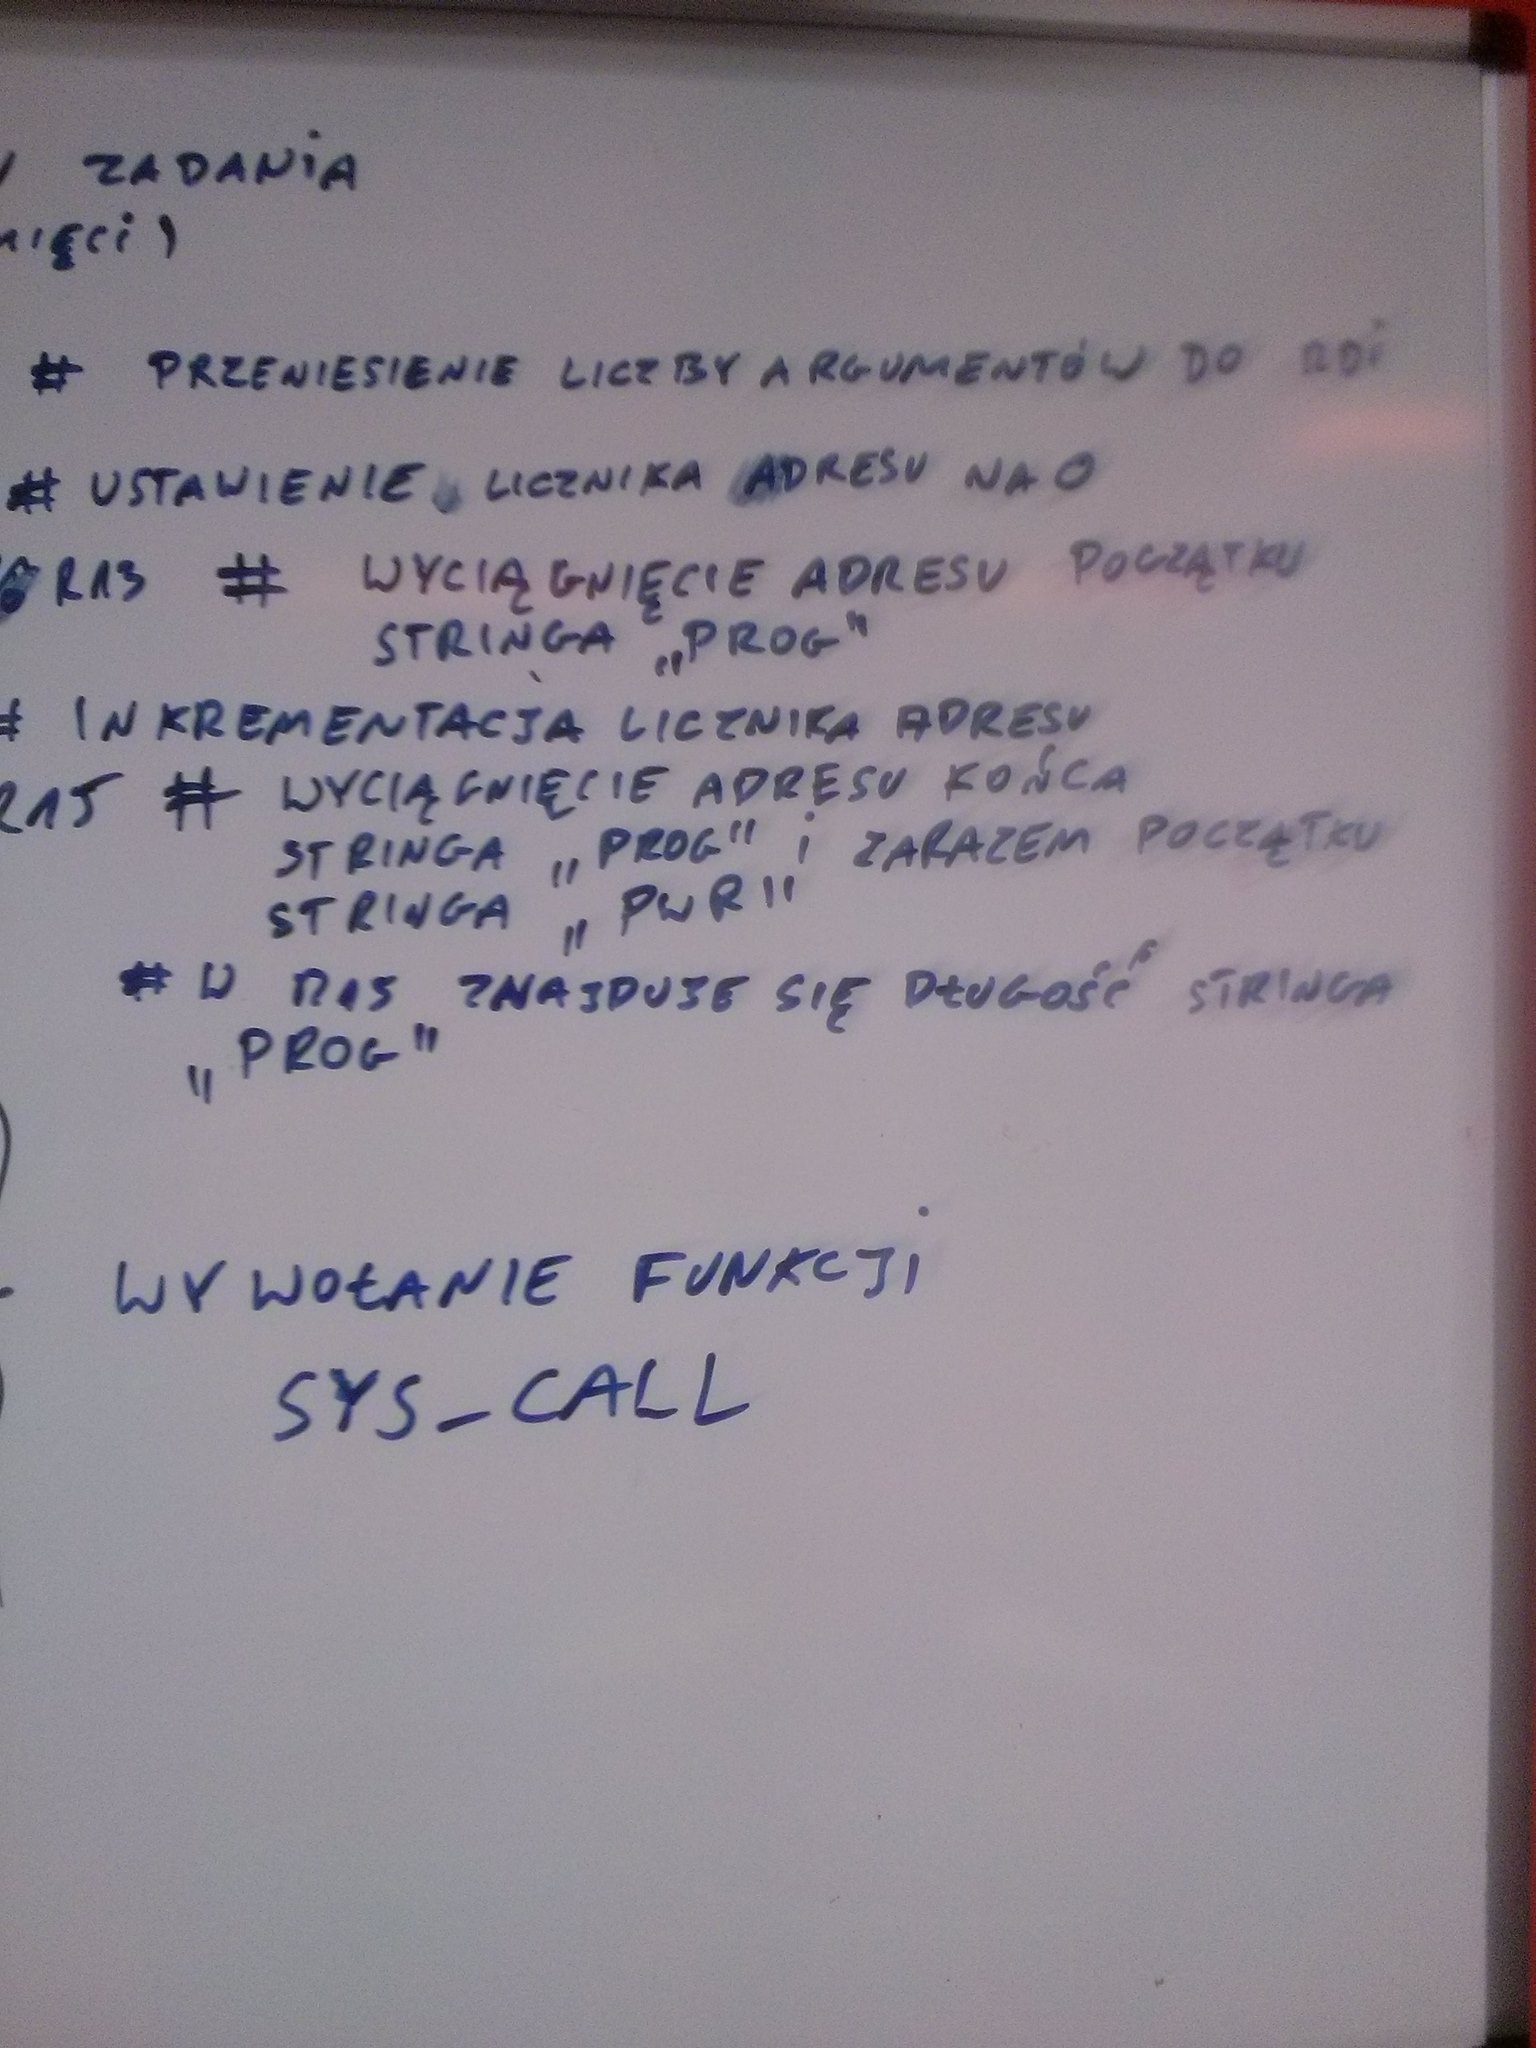 ZADANiA
mięci)
# PRZENIESIENIE LICZBY ARGUMENTÓW DO RDi
# USTAWIENIE LICZNIKA ADRESU NA 0
R13 # WYCIĄGNIĘCIE ADRESU POCZĄTKU
STRINGA „PROG"
# INKREMENTACJA LICZNIKA ADRESU
R15 # WYCIĄGNIĘCIE ADRESU KOŃCA
STRINGA „PROG" i ZARAZEM POCZĄTKU
STRINGA „PWR"
# W R15 ZNAJDUJE SIĘ DŁUGOŚĆ STRINGA
„PROG"
WYWOŁANIE FUNKCJi
SYS_CALL